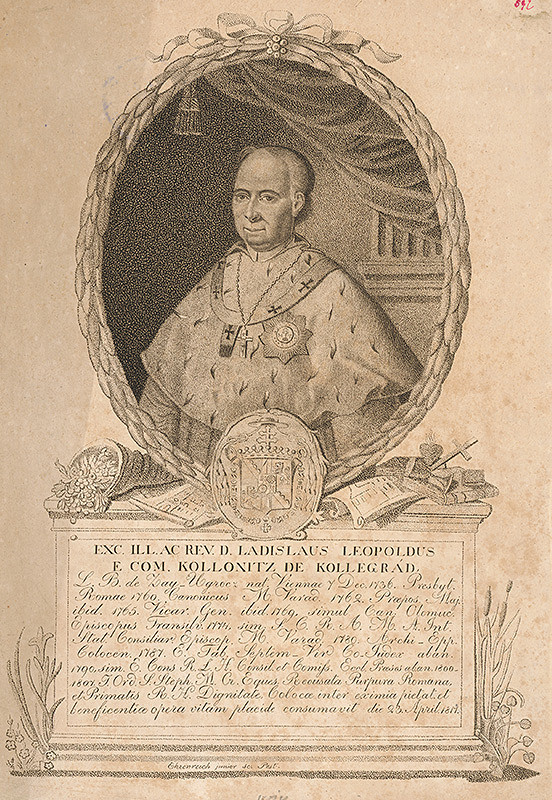 892
EXC. ILL. AC REV. D. LADISLAUS LEOPOLDUS
E COM. KOLLONITZ DE KOLLEGRAD.
L. B. de Zay Ugrocz nat. Viennae 7 Dec. 1736. Presbyt.
Romae 1760. Canonicus M. Varad. 1762. Præpos. Maj.
ibid. 1765. Vicar. Gen. ibid 1769. simul Can. Olomuc.
Episcopus Transilv. 1774. sim. S. C. R. A. M. N. Int.
Stat. Consiliar. Episcop. M. Varad. 1780. Archi-Epp.
Colocen. 1787. E. Tab. Septem-Vir Co-Judex a ban.
1790. sim. E. Cons R. L. H. Consil. et Comiss. Eccl. Præses a ban. 1800.
1807. I. Ord. S. Steph. M. Cr. Eques. Recusata Purpura Romana,
et Primatis R. H. Dignitate. Colocæ inter eximia pietat. et
beneficentiæ opera vitam placide consumavit die 23. April. 1817.
Ehrenreich junior sc. Pest.